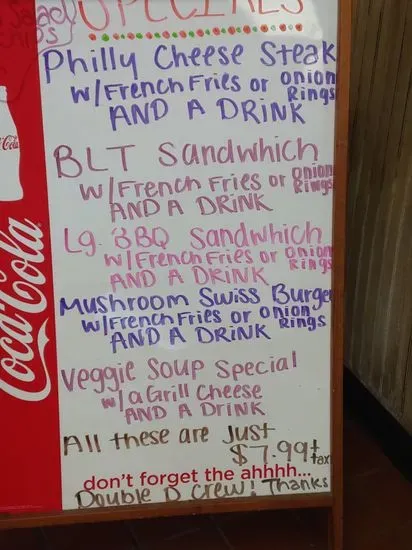 Salad
Chips
SPECIALS
Philly Cheese Steak
w/French Fries or onion Rings
AND A DRINK
BLT Sandwhich
w/French Fries or onion Rings
AND A DRINK
Lg. BBQ Sandwhich
w/French Fries or onion Rings
AND A DRINK
Mushroom Swiss Burger
w/French Fries or onion Rings
AND A DRINK
Veggie Soup Special
w/a Grill Cheese
AND A DRINK
All these are Just
$7.99 + tax
don't forget the ahhhh...
Double D Crew! Thanks
Coca-Cola
Coca-Cola